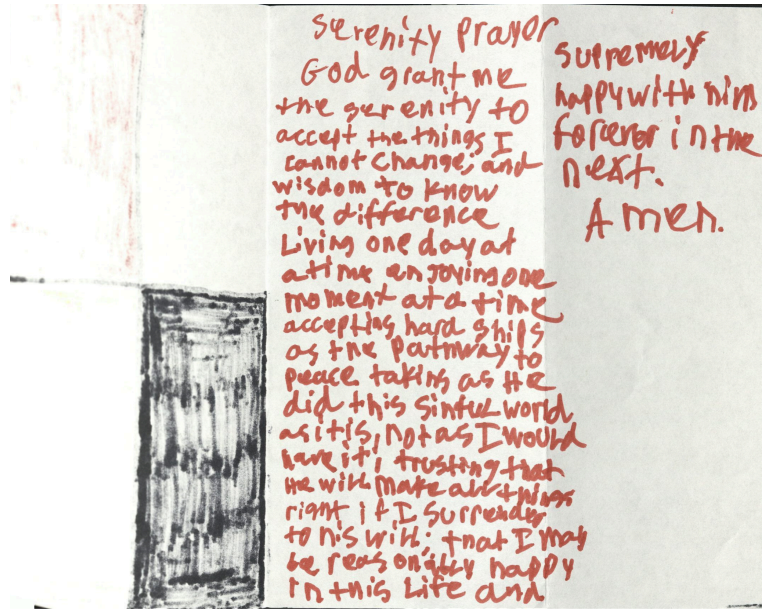 Serenity Prayer
God grant me
the serenity to
accept the things I
cannot change; and
wisdom to know
the difference
Living one day at
a time enjoying one
moment at a time
accepting hard ships
as the pathway to
peace taking as He
did this sinful world
as it is, not as I would
have it; trusting that
He will make all things
right if I surrender
to his will; that I may
be reasonally happy
in this Life and
supremely
happy with him
forever in the
next.
Amen.